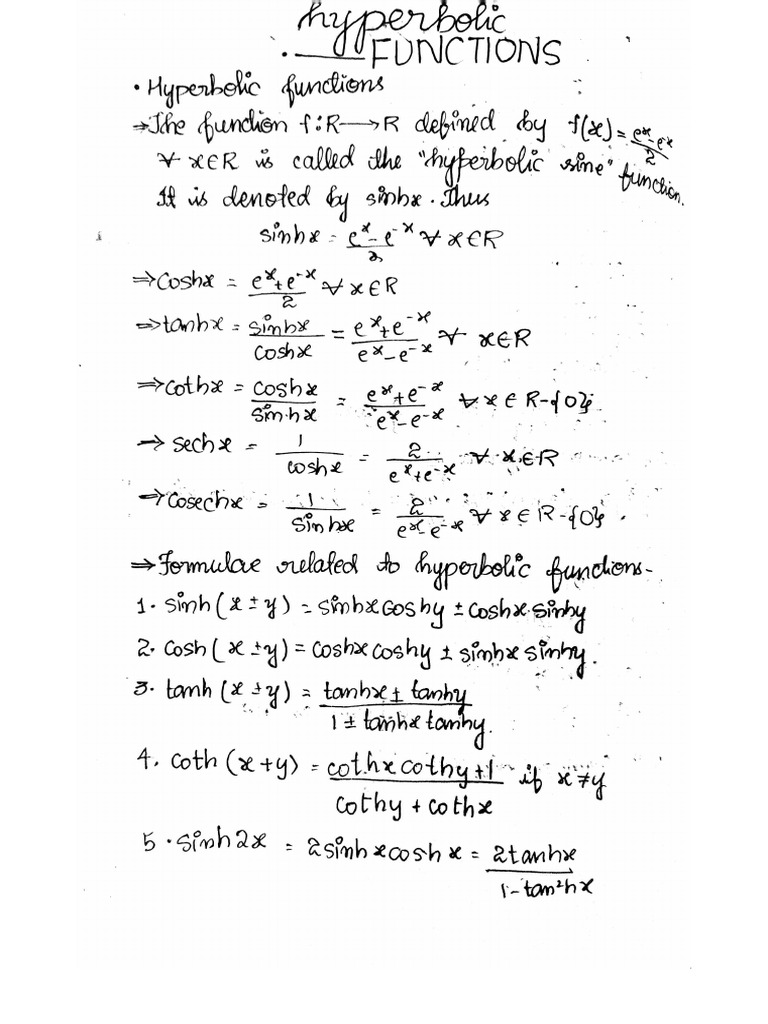 hyperbolic
FUNCTIONS
• Hyperbolic functions
→ The function f:R→R defined by f(x) = (e^x - e^-x)/2
∀ x∈R is called the "hyperbolic sine" function.
It is denoted by sinhx. Thus
sinhx = (e^x - e^-x)/2 ∀ x∈R
⇒ Coshx = (e^x + e^-x)/2 ∀ x∈R
⇒ tanhx = sinhx/coshx = (e^x + e^-x)/(e^x - e^-x) ∀ x∈R
⇒ cothx = coshx/sinhx = (e^x + e^-x)/(e^x - e^-x) ∀ x∈R-{0}.
→ sechx = 1/coshx = 2/(e^x + e^-x) ∀ x∈R
⇒ Cosechx = 1/sinhx = 2/(e^x e^-x) ∀ x∈R-{0}.
⇒ Formulae related to hyperbolic functions-
1. sinh(x ± y) = sinhx coshy ± coshx.sinhy
2. cosh(x ± y) = coshx coshy ± sinhx sinhy.
3. tanh(x ± y) = (tanhx ± tanhy)/(1 ± tanhx tanhy).
4. coth(x + y) = (cothx cothy + 1)/(cothy + cothx) if x ≠ y
5. sinh2x = 2sinhxcoshx = 2tanhx/(1 - tan²hx)